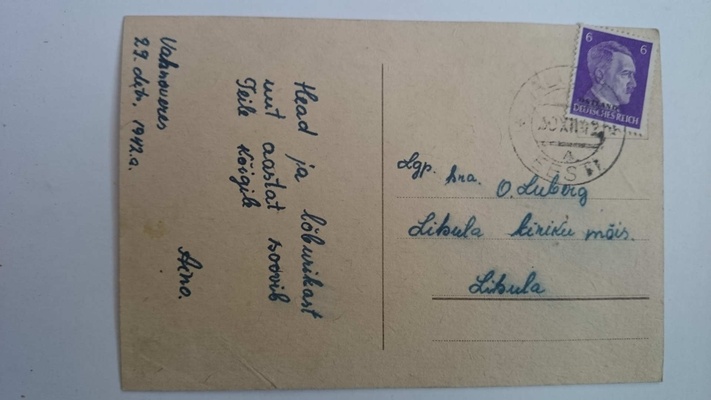 Vahnoveres
29. dets. 1942.a.
Head ja lõburikast
uut aastat soovib
Teile kõigile
Aino.
6 6
DEUTSCHES REICH
30 XII 42
A
EESTI
Lgp. hra. O. Luberg
Lihula kiriku mõis.
Lihula